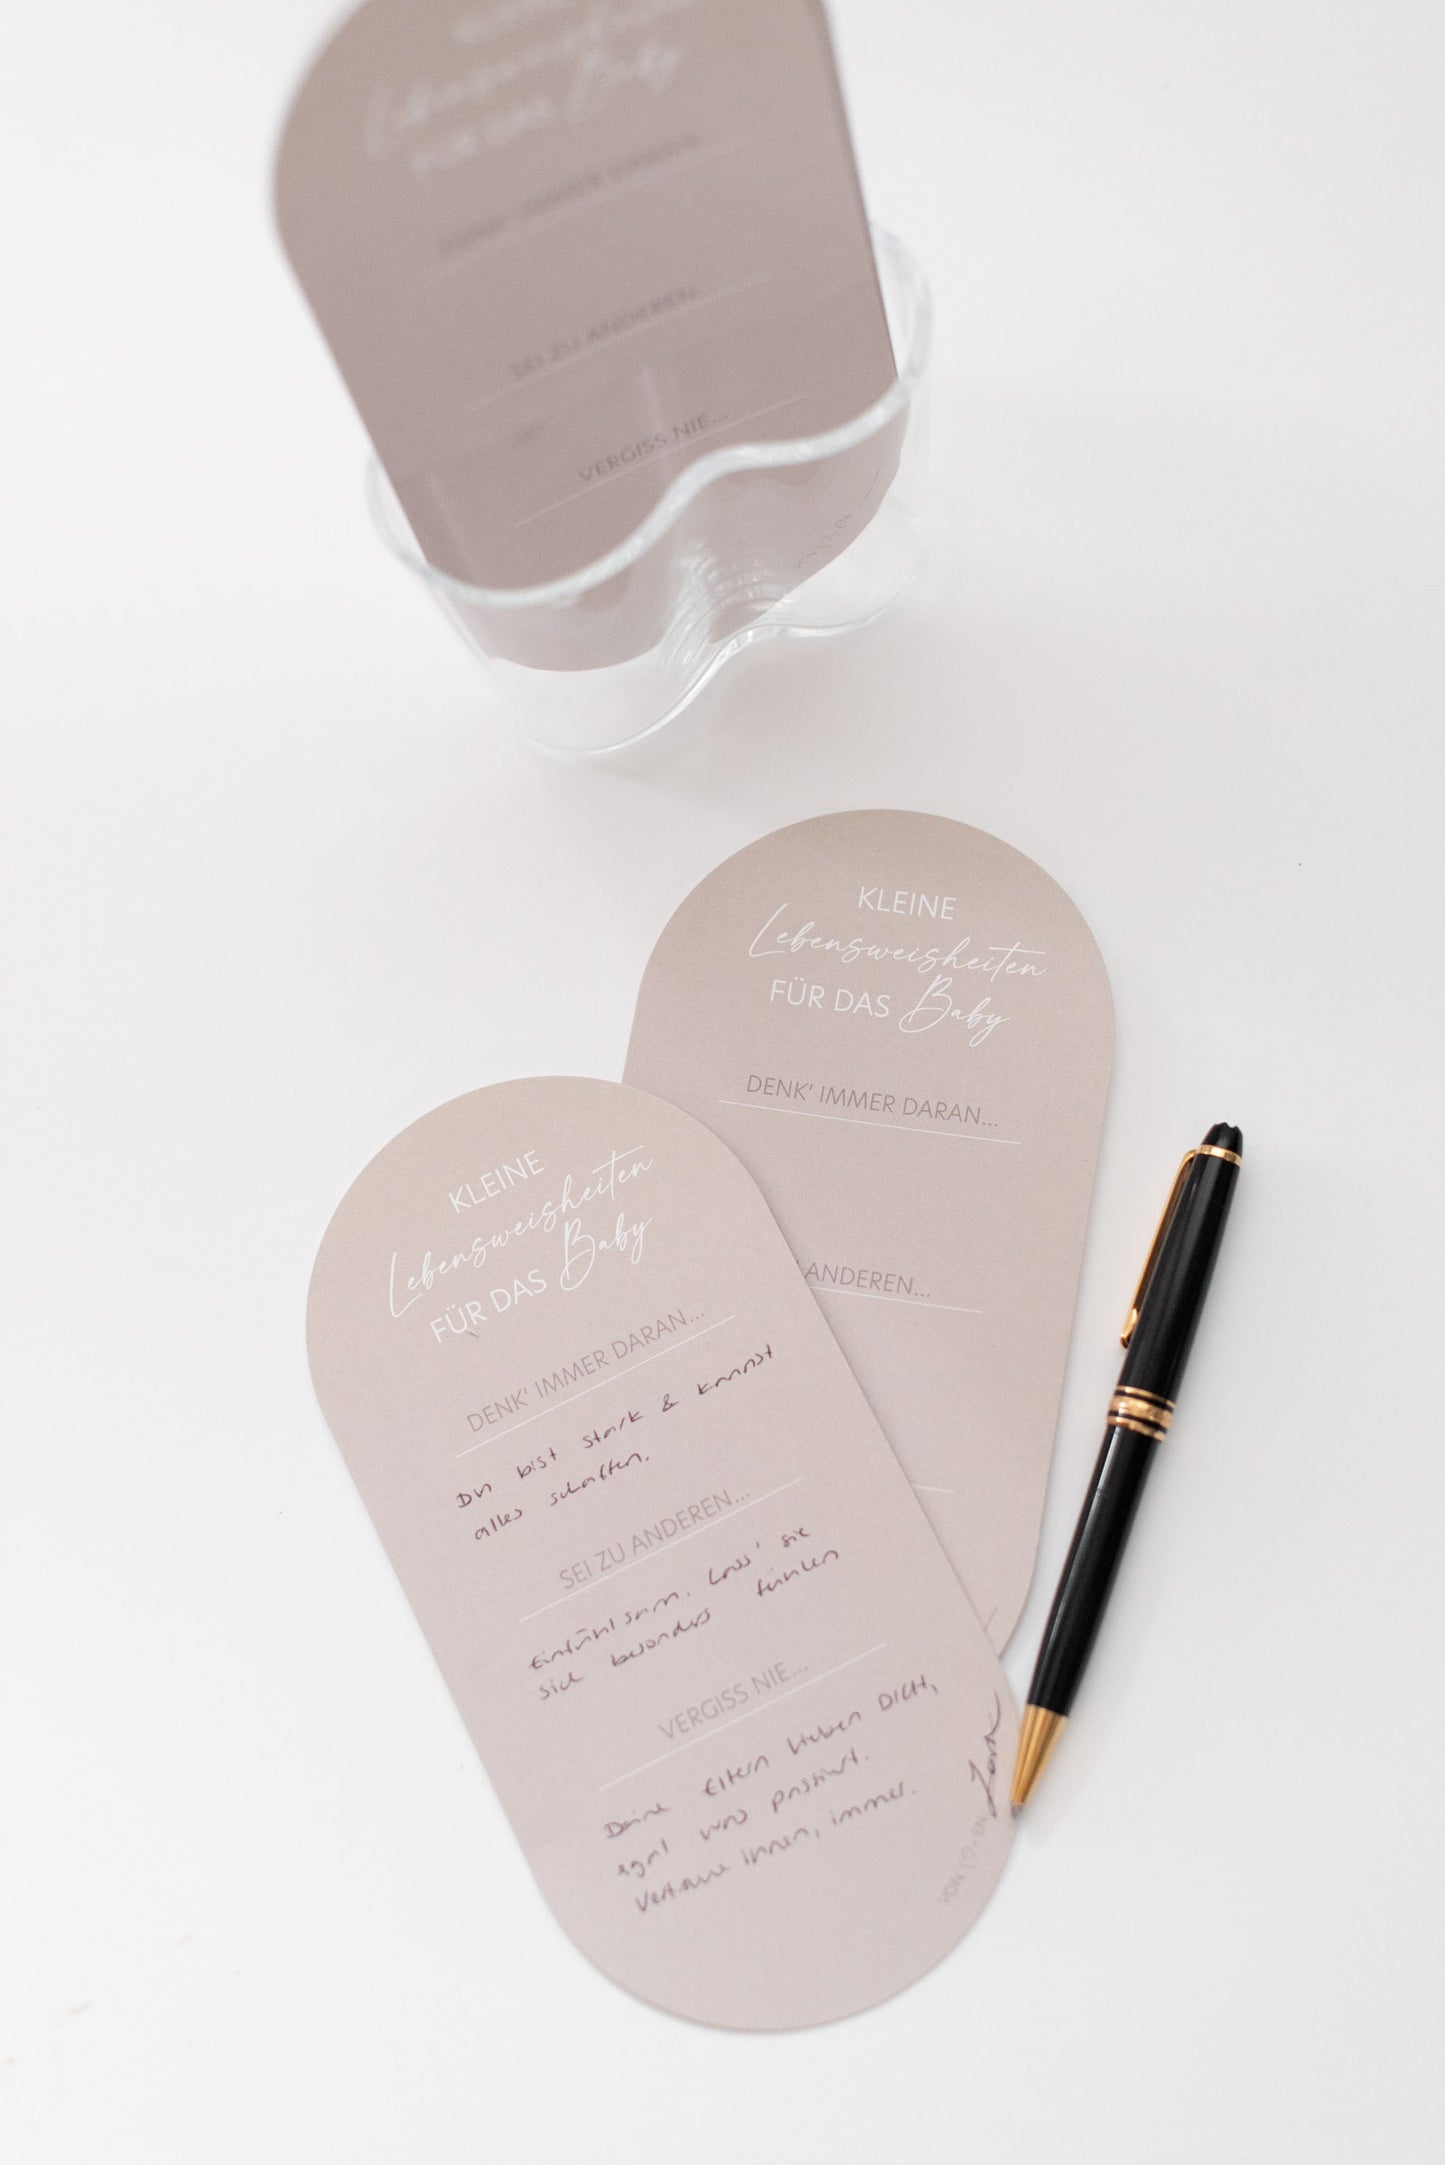 Lebensweisheiten
FÜR DAS Baby
DENK' IMMER DARAN...
SEI ZU ANDEREN...
VERGISS NIE...
VON ♡-EN
KLEINE
Lebensweisheiten
FÜR DAS Baby
DENK' IMMER DARAN...
ANDEREN...
KLEINE
Lebensweisheiten
FÜR DAS Baby
DENK' IMMER DARAN...
Du bist stark & kannst
alles schaffen.
SEI ZU ANDEREN...
Einfühlsam. Lass' sie
sich besonders fühlen
VERGISS NIE...
Deine Eltern lieben DICH,
egal was passiert.
Vertraue ihnen, immer.
VON ♡-EN